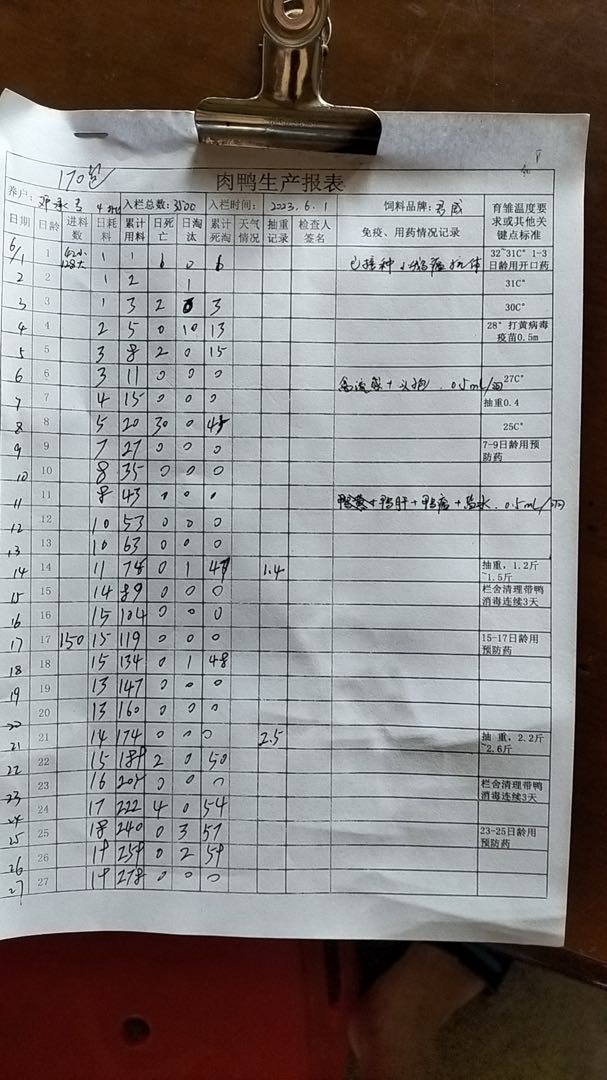 170包
肉鸭生产报表
养户: 入栏总数: 3500 入栏时间: 2023.6.1 饲料品牌: 育雏温度要求或其他关键点标准
日期 日龄 进料数 日耗料 累计用料 日死亡 日淘汰 累计死淘 天气情况 抽重记录 检查人签名 免疫、用药情况记录
6/1 1 1 1 6 0 6 32~31C° 1-3日龄用开口药
2 2 1 2 1 31C°
3 3 1 3 2 0 3 30C°
4 4 2 5 0 10 13 28° 打黄病毒疫苗0.5m
5 5 3 8 2 0 15
6 6 3 11 0 0 0 0.5mL/羽 27C°
7 7 4 15 0 0 0 抽重0.4
8 8 5 20 30 0 25C°
9 9 7 27 0 0 0 7-9日龄用预防药
10 10 8 35 0 0 0
11 11 8 43 0 0 0 0.5mL/羽
12 12 10 53 0 0 0
13 13 10 63 0 0 0
14 14 11 74 0 1 47 1.4 抽重，1.2斤~1.5斤
15 15 14 89 0 0 0 栏舍清理带鸭消毒连续3天
16 16 15 104 0 0 0
17 17 150 15 119 0 0 0 15-17日龄用预防药
18 18 15 134 0 1 48
19 19 13 147 0 0 0
20 20 13 160 0 0 0
21 21 14 174 0 0 0 2.5 抽 重，2.2斤~2.6斤
22 22 15 189 2 0 50
23 23 16 0 0 0 栏舍清理带鸭消毒连续3天
24 24 17 222 4 0 54
25 25 18 240 0 3 57 23-25日龄用预防药
26 26 19 259 0 2 59
27 27 19 278 0 0 0